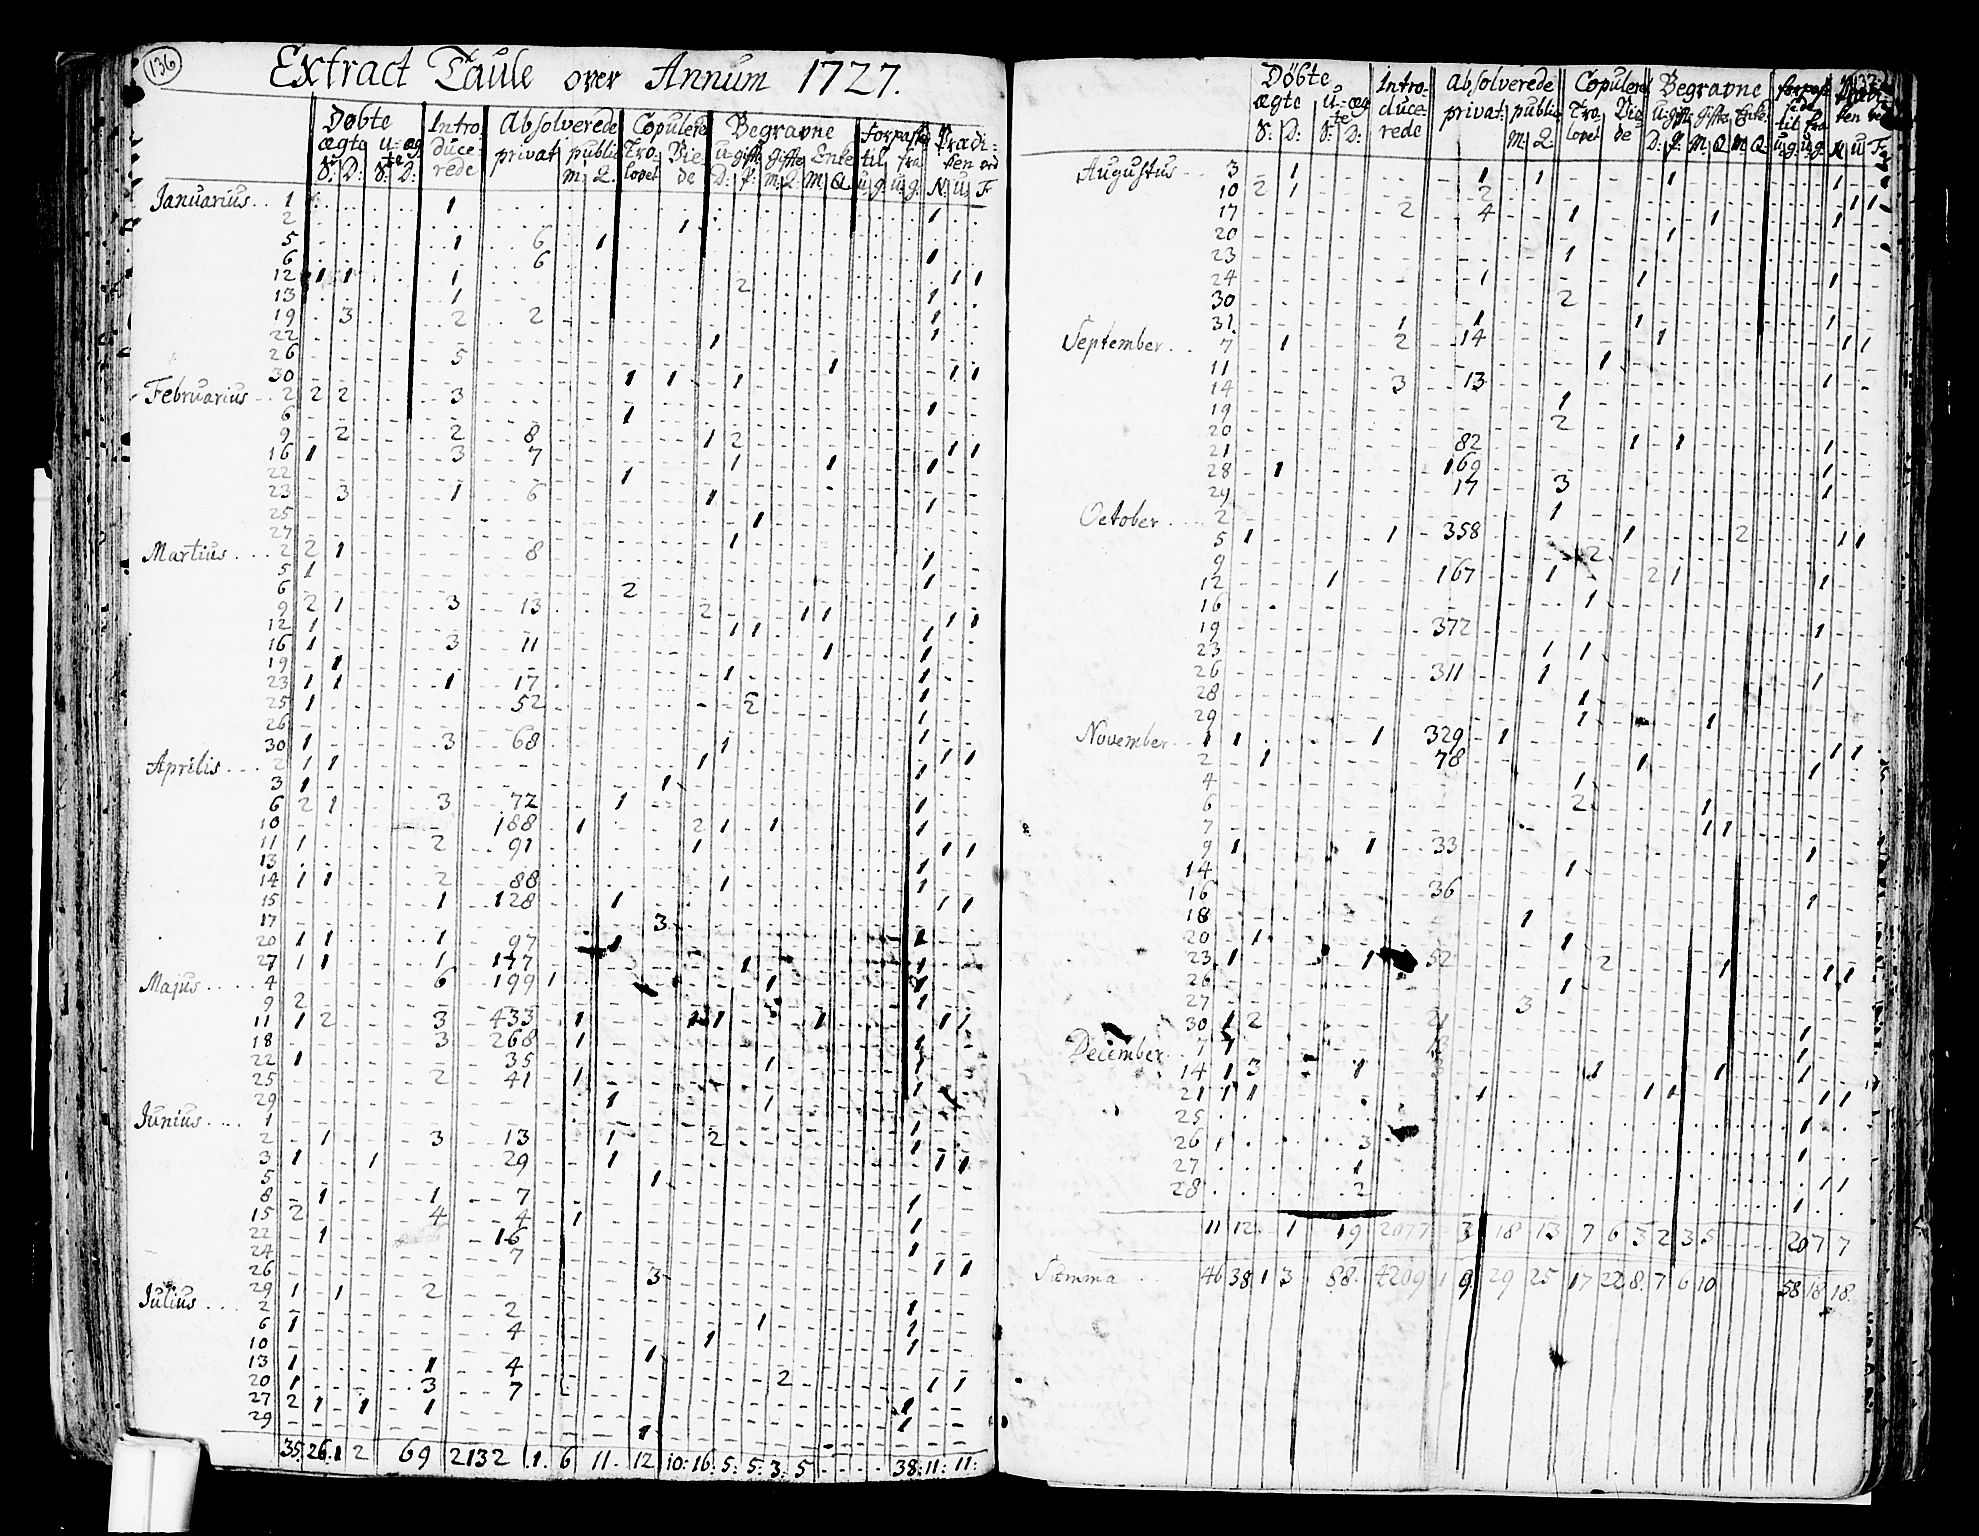 136
Extract Taule over Annum 1727.
Døbte Intro- Absolverede Copulerede Begravne Forpas Prædi-
ægte u=æg duce- privat public Tro- Vie u-gifte gifte Enke til fra ken ved
S: D: S: D: rede m. Q. lovet de D: S: m. Q. M. Q. u g u g. N. u F
Januarius 1 1
2 1 1
5 1 6 1
6 6 1
12 1 1 1 2 1 1
13 1 1
19 3 2 2 1
22 1 1
26 5 1
30 1 1 1 1 1
Februarius 2 2 2 3
6 1 1
9 2 2 8 1 2
16 1 3 7 1 1
22 1 1 1 1
23 3 1 6 1
25 1 1
27 1
Martius 2 2 1 8
5 1 1
6 2 1
9 2 1 3 13 2 1 1
12 1 1 1 1 1
16 1 3 11 1
19 1 1
23 1 1 1 17 1
25 1 52 2
26
30 1 3 68 1
Aprilis 2 1 1 1 1 1
3 1 1 1
6 2 1 3 72 1
10 188 1 2 1 1 1
11 1 2 91 1
13 1 1
14 1 1 2 88 1 1
15 1 128 1
17 3 1 1
20 1 1 1 97 1 1
27 1 1 1 177 1 1
Majus 4 6 199 1 1
9 2
11 1 2 3 433 1 1 1
18 3 268 1
22 1 35 1
25 2 41 1
29 1 1
Junius 1
2 1 3 13 1 2
3 1 1 29 1
5 1 1 1
8 1 1 7
15 2 4 4 1 1
22 1 16
24 7 1
26 3 1 1
29 1 1 2
Julius 2 2 1
6 1 4 1 1
10 1 1
13 1 1 4 1
20 1 3 7 2 1 1
27 2 1 1 1 1
29 1 1
35 26 1 2 69 2132 1. 6 11. 12 10: 16: 5: 5: 3: 5 38: 11: 11:
Døbte Intro- Absolverede Copulere Begravne
ægte u=æg duce- privat: public Tro- Vie u-gifte gifte Enke
S: D: S: D: rede m. Q lovet de D: S. M. Q m Q. N u F
Augustus 3 1 1 1 1
10 2 1 2 1
17 2 4 1 1 1 1
20 1
23 1
24 1 1 1
30 2
31 1 1 1 1
September 7 1 2 14 1 1 1
11 1
14 3 13 1
19 1
20 2
21 82 1 1 1
28 1 169 1
29 17 3 1
October 2 1
5 1 1 358 1 2 1 1
9 2
12 1 167 1 2 1 1
16 1
19 372 1
23 1 1
26 311 1 1
28 1
29 1 1
November 1 1 1 329 1
2 1 78 1 1 1
4 1 1
6 2 1
7 1 1
9 1 1 33 1
14 1
16 36 1
18 1
20 1 1
23 1 1 52 2 1 1 1
26 1
27 3
30 1 2 1
December 7 1 1
14 1 3 1 1 1 1
21 1 1 1 1 1 1 1
25
26 1 3 1
27 1 1
28 2 1 1
11 12 1 19 2077 3 18 13 7 6 3 2 3 5 20 7 7
Summa 46 38 1 3 88. 4209 1 9 29 25 17 22 8. 7 6 10 58 18 18.